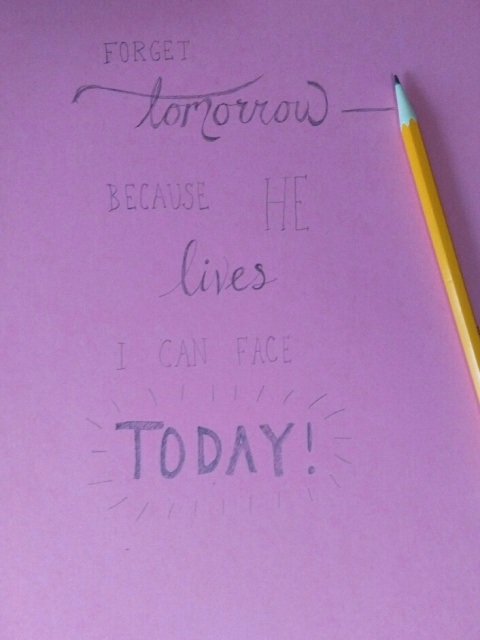 FORGET
tomorrow
BECAUSE HE
lives
I CAN FACE
TODAY!